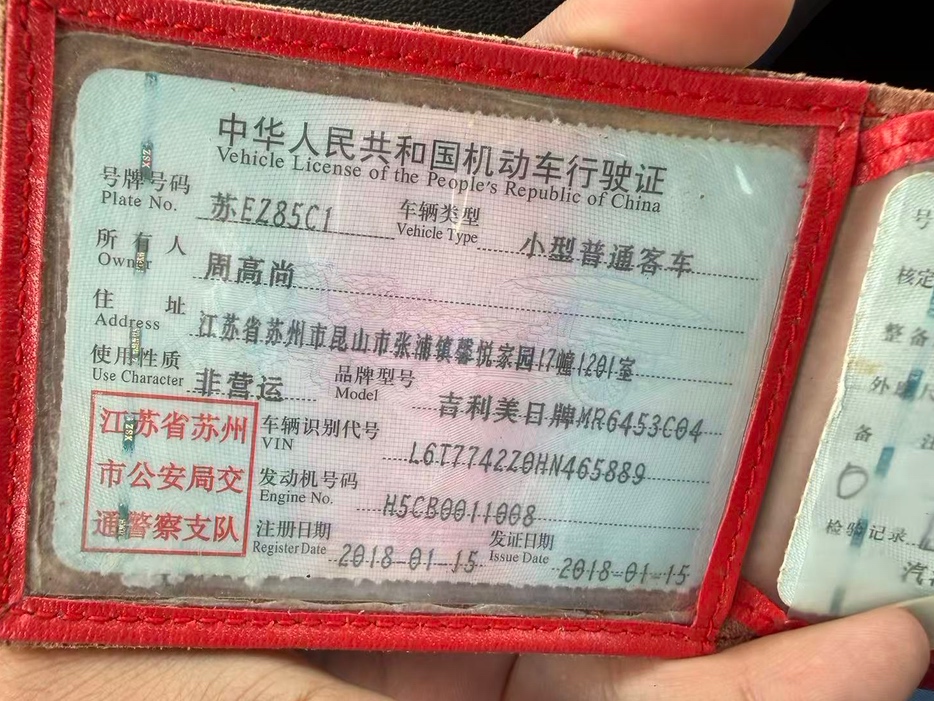 中华人民共和国机动车行驶证
Vehicle License of the People's Republic of China
号牌号码 苏EZ85C1 车辆类型 小型普通客车
Plate No. Vehicle Type
所有人 周高尚
Owner
住址 江苏省苏州市昆山市张浦镇馨悦家园17幢1201室
Address
使用性质 非营运 品牌型号 吉利美日牌MR6453C04
Use Character Model
江苏省苏州
市公安局交
通警察支队
车辆识别代号 L6T7742Z0HN465889
VIN
发动机号码 H5CB0011008
Engine No.
注册日期 2018-01-15 发证日期 2018-01-15
Register Date Issue Date
号
核定
整备
外廓尺
备 注
检验记录